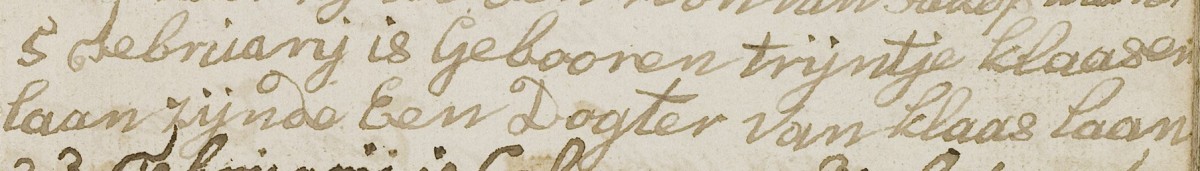 5 Februarij is Gebooren trijntje klaasen
laan zijnde Een Dogter van klaas laan